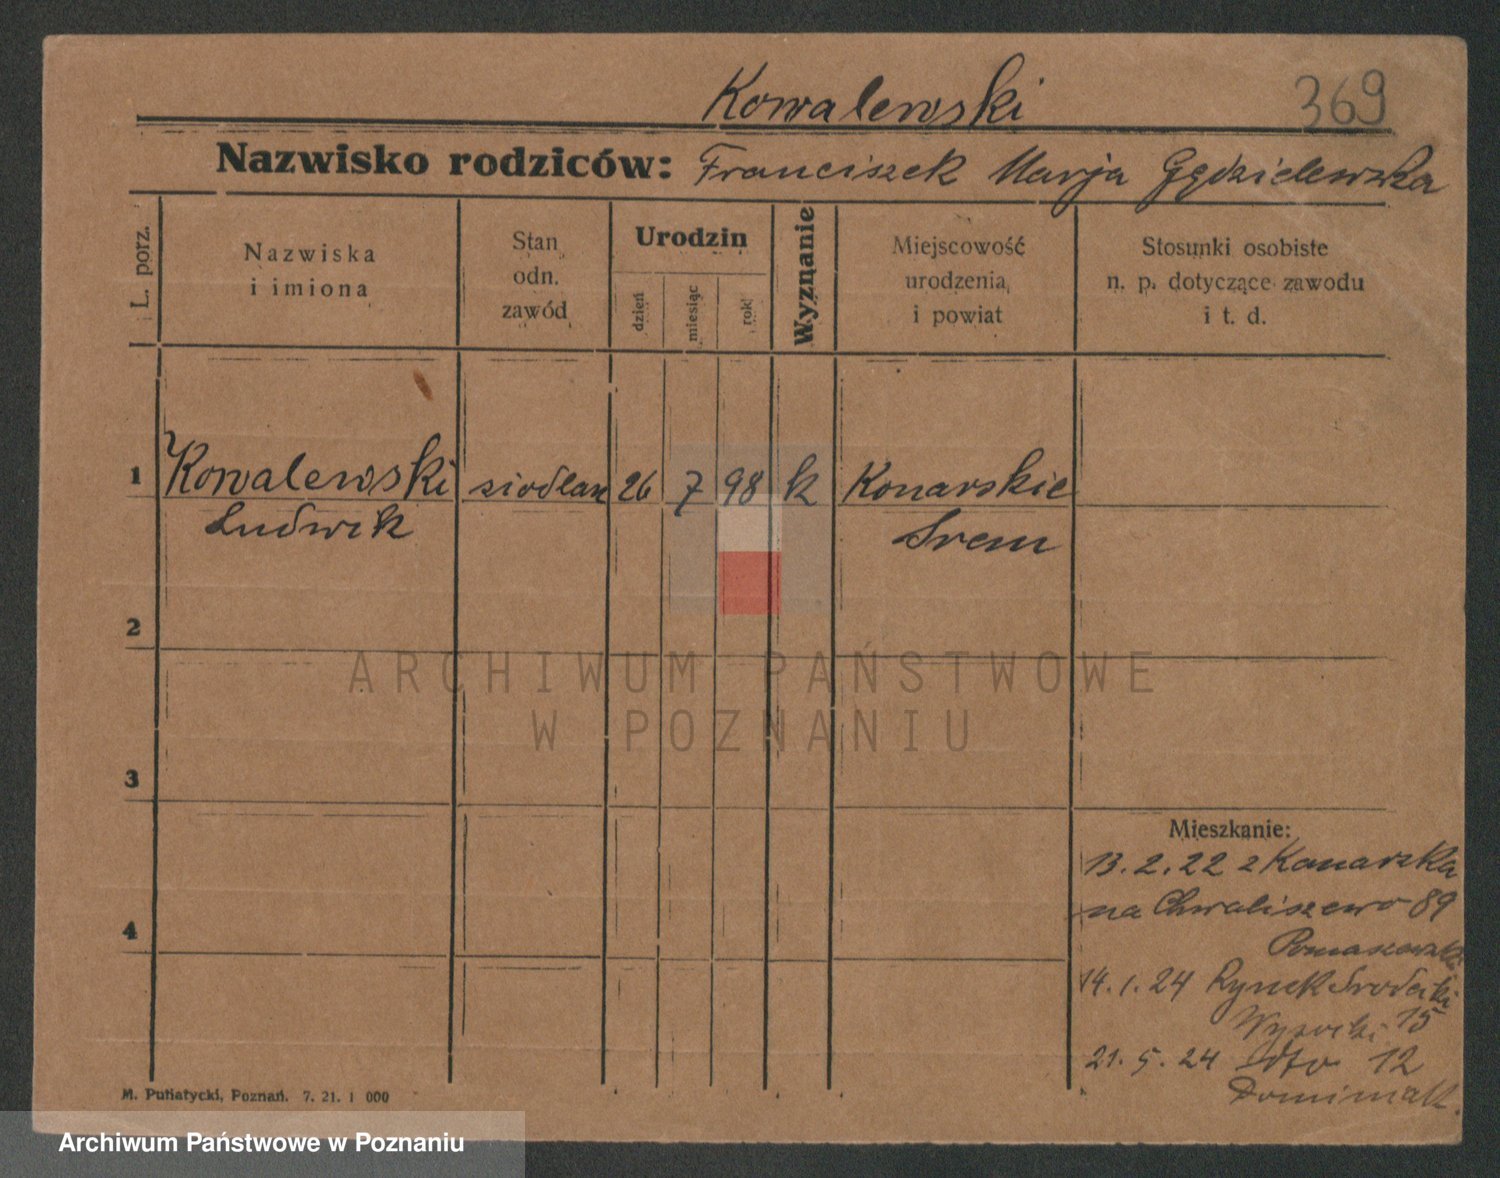 Kowalewski 369
Nazwisko rodziców: Franciszek Marja Gędzielewska
L. porz.
Nazwiska
i imiona
Stan
odn.
zawód
Urodzin
dzień
miesiąc
rok
Wyznanie
Miejscowość
urodzenia
i powiat
Stosunki osobiste
n. p. dotyczące zawodu
i t. d.
1 Kowalewski siodlarz 26 7 98 k Konarskie
Ludwik Srem
2
3
4
Mieszkanie:
13.2.22 z Konarska
na Chwaliszewo 89
14.1.24 Rynek Srodecki
Wysocki 15
21.5.24 dto 12
Dominiak.
M. Putiatycki, Poznań. 7. 21. 1 000
ARCHIWUM PAŃSTWOWE
W POZNANIU
Archiwum Państwowe w Poznaniu